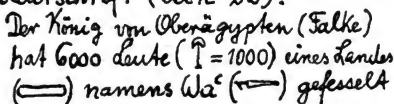 Der König von Oberägypten (Falke)
hat 6000 Leute ( = 1000) eines Landes
( ) namens Waᶜ ( ) gefesselt